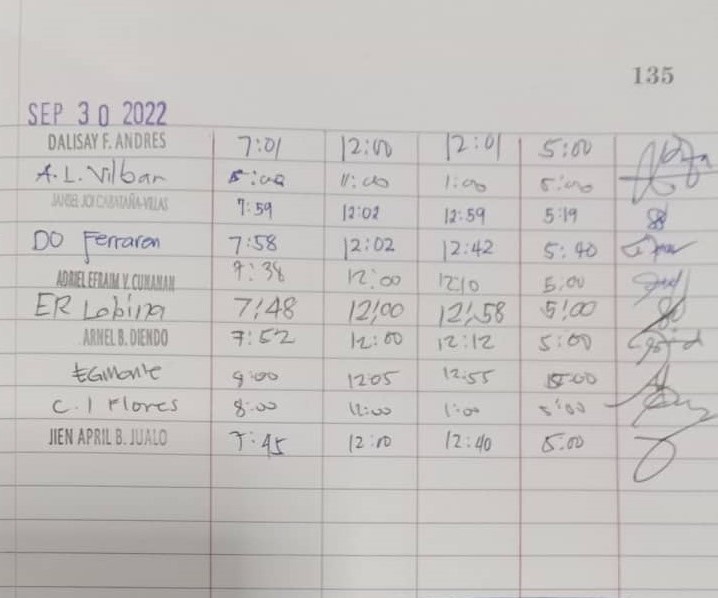 135
SEP 30 2022
DALISAY F. ANDRES 7:01 12:00 12:01 5:00
A.L. Vilbar 8:00 11:00 1:00 5:00
7:59 12:02 12:59 5:19
DO Ferraren 7:58 12:02 12:42 5:40
ADRIEL EFRAIM Y. CUNANAN 7:38 12:00 1210 5:00
ER Lobina 7:48 12:00 12:58 5:00
ARNEL B. DIENDO 7:52 12:00 12:12 5:00
EGMonte 8:00 1205 12:55 5:00
C. I Flores 8:00 12:00 1:00 5:00
JIEN APRIL B. JUALO 7:45 12:00 12:40 5:00